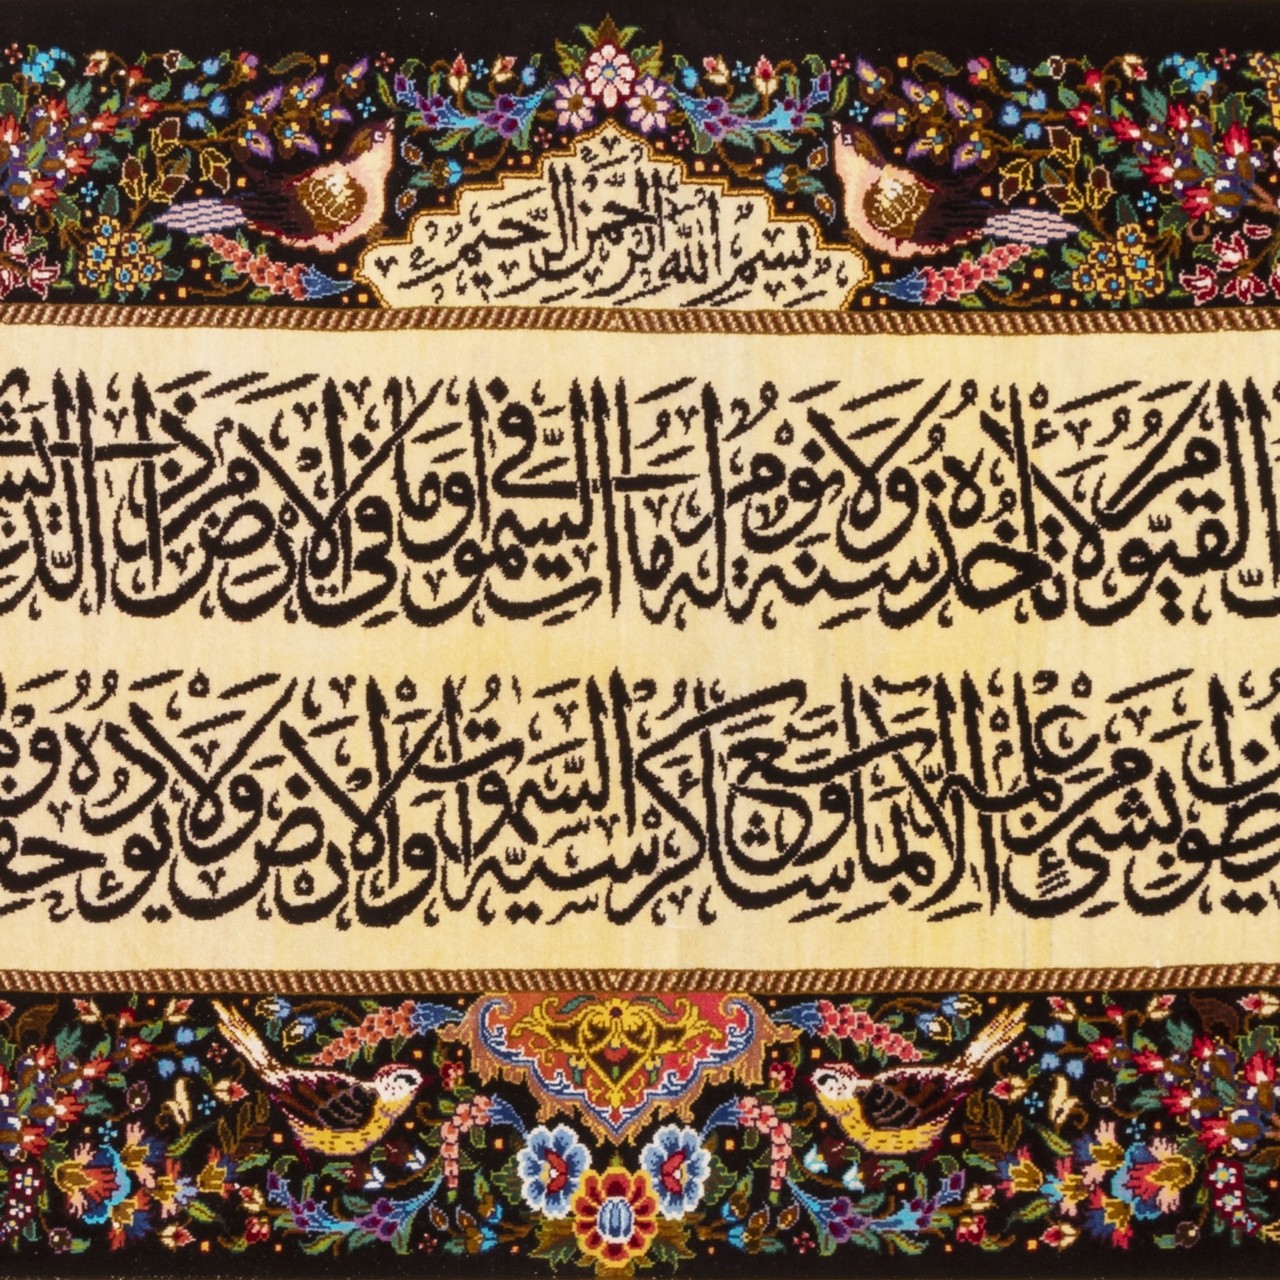 بِسْمِ اللهِ الرَّحْمنِ الرَّحِيمِ
الْقَيُّومُ لَا تَأْخُذُهُ سِنَةٌ وَلَا نَوْمٌ لَهُ مَا فِي السَّمٰوَاتِ وَمَا فِي الْأَرْضِ مَنْ ذَا
بِشَيْءٍ مِنْ عِلْمِهِ إِلَّا بِمَا شَاءَ وَسِعَ كُرْسِيُّهُ السَّمٰوَاتِ وَالْأَرْضَ وَلَا يَؤُدُهُ